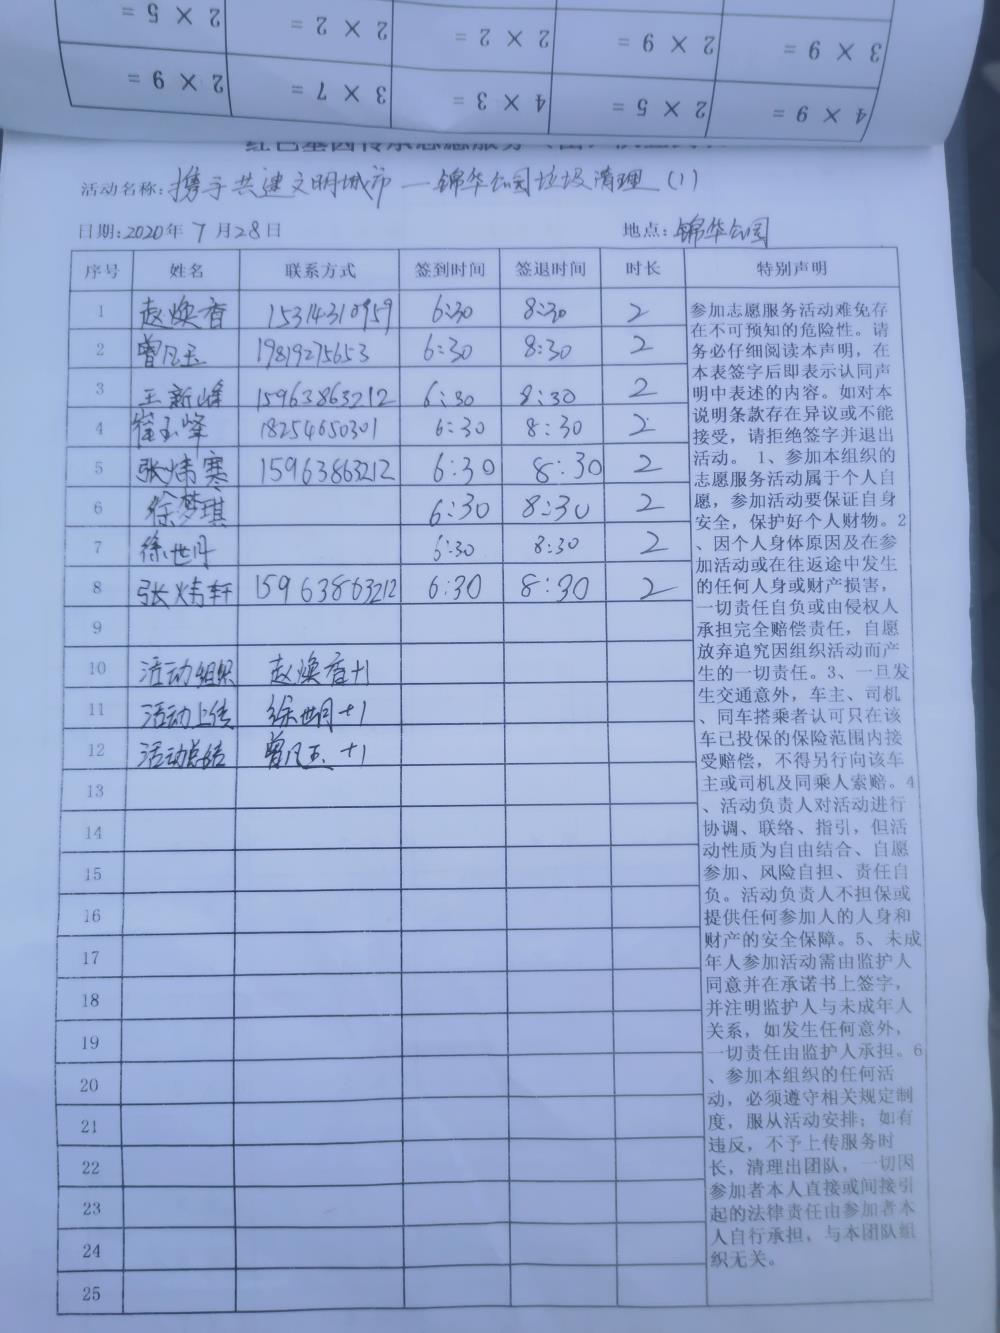 2 × 5 =
2 × 2 =
2 × 2 =
2 × 9 =
3 × 9 =
2 × 9 =
3 × 7 =
4 × 3 =
2 × 5 =
4 × 9 =
活动名称: 携手共建文明城市—锦华公园垃圾清理(1)
日期: 2020年 7 月28日 地点: 锦华公园
序号 姓名 联系方式 签到时间 签退时间 时长 特别声明
1 赵焕香 15314310959 6:30 8:30 2
2 曾凡玉 19819275653 6:30 8:30 2
3 王新峰 15963863212 6:30 8:30 2
4 崔玉峰 18254650301 6:30 8:30 2
5 张炜寒 15963863212 6:30 8:30 2
6 徐梦琪 6:30 8:30 2
7 徐世月 6:30 8:30 2
8 张炜轩 15963863212 6:30 8:30 2
9
10 活动组织 赵焕香+1
11 活动上传 徐世月+1
12 活动总结 曾凡玉+1
13
14
15
16
17
18
19
20
21
22
23
24
25
参加志愿服务活动难免存
在不可预知的危险性。请
务必仔细阅读本声明，在
本表签字后即表示认同声
明中表述的内容。如对本
说明条款存在异议或不能
接受，请拒绝签字并退出
活动。 1、参加本组织的
志愿服务活动属于个人自
愿，参加活动要保证自身
安全，保护好个人财物。2
、因个人身体原因及在参
加活动或在往返途中发生
的任何人身或财产损害，
一切责任自负或由侵权人
承担完全赔偿责任，自愿
放弃追究因组织活动而产
生的一切责任。3、一旦发
生交通意外，车主、司机
、同车搭乘者认可只在该
车已投保的保险范围内接
受赔偿，不得另行向该车
主或司机及同乘人索赔。4
、活动负责人对活动进行
协调、联络、指引，但活
动性质为自由结合、自愿
参加、风险自担、责任自
负。活动负责人不担保或
提供任何参加人的人身和
财产的安全保障。5、未成
年人参加活动需由监护人
同意并在承诺书上签字，
并注明监护人与未成年人
关系，如发生任何意外，
一切责任由监护人承担。6
、参加本组织的任何活
动，必须遵守相关规定制
度，服从活动安排；如有
违反，不予上传服务时
长，清理出团队，一切因
参加者本人直接或间接引
起的法律责任由参加者本
人自行承担，与本团队组
织无关。